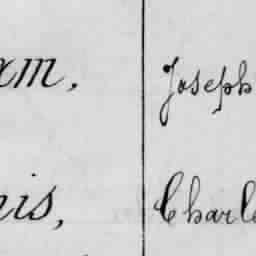 xm, Joseph
nis, Charle